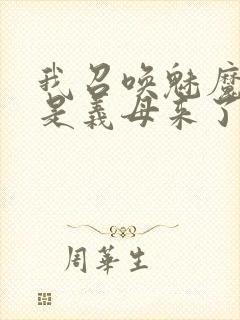 我召唤魅魔
是義母来了
周華生